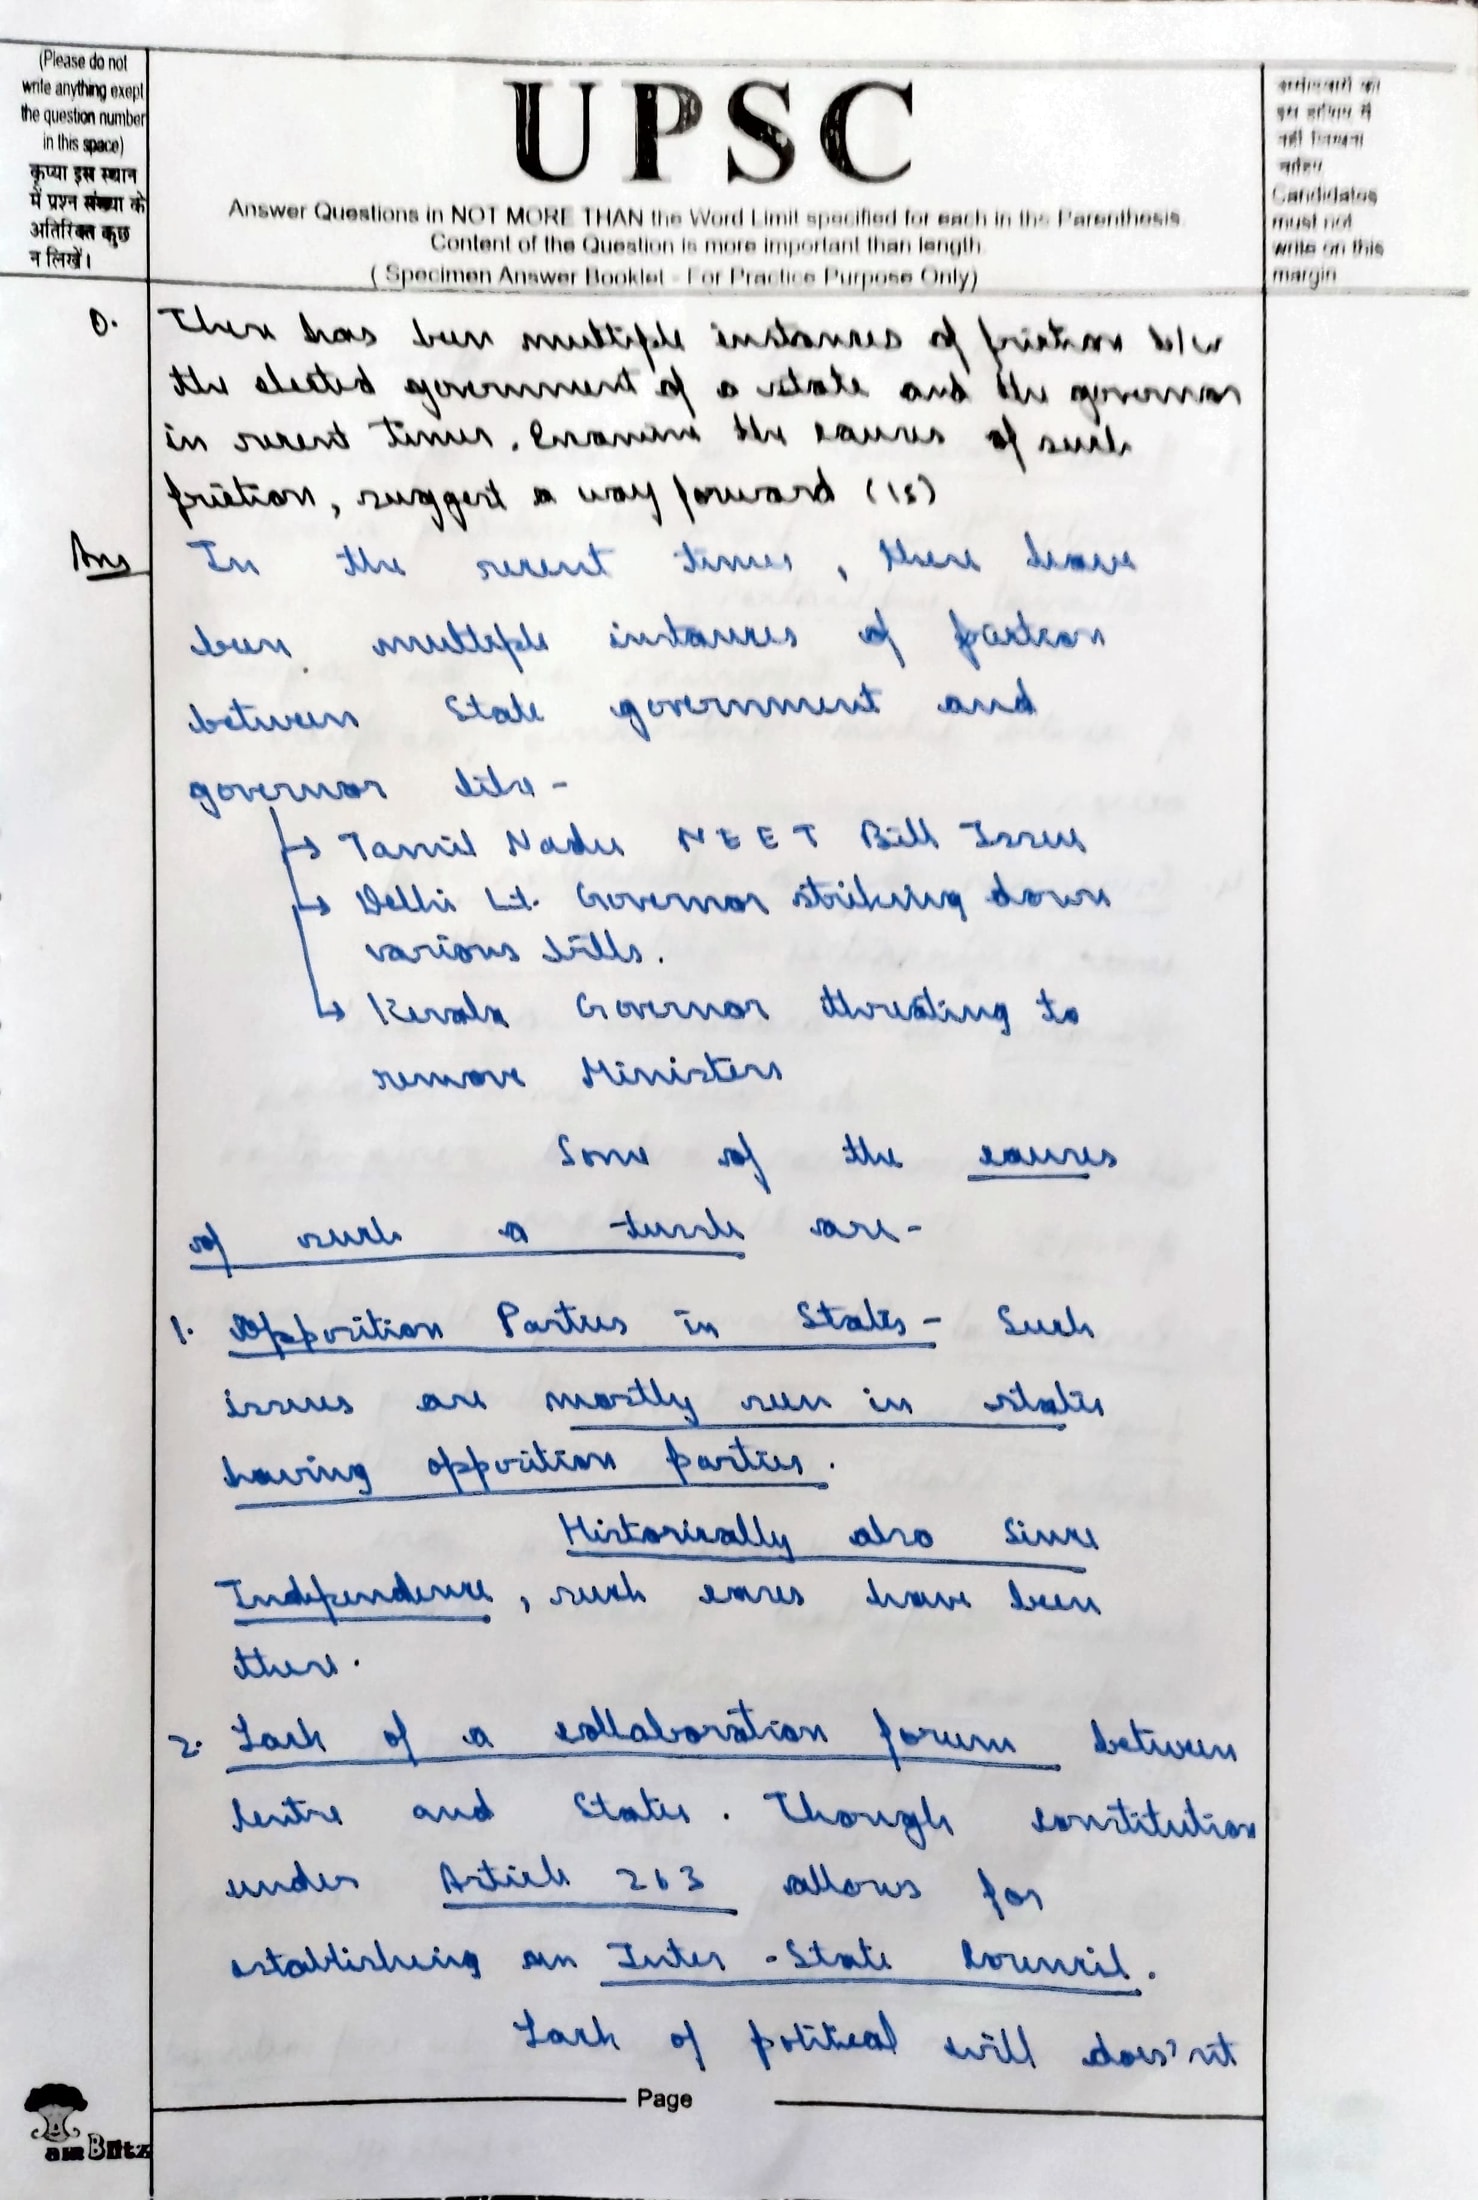 (Please do not
write anything exept
the question number
in this space)
कृप्या इस स्थान
में प्रश्न संख्या के
अतिरिक्त कुछ
न लिखें।
UPSC
Answer Questions in NOT MORE THAN the Word Limit specified for each in the Parenthesis.
Content of the Question is more important than length.
( Specimen Answer Booklet - For Practice Purpose Only)
इस में
नहीं
Candidates
must not
write on this
margin
Q. There has been multiple instances of friction b/w
the elected government of a state and the governor
in recent times. Examine the causes of such
friction, suggest a way forward (15)
Ans In the recent times, there have
been multiple instances of friction
between State government and
governor like -
→ Tamil Nadu NEET Bill Issue
→ Delhi Lt. Governor striking down
various bills.
→ Kerala Governor threating to
remove Ministers
Some of the causes
of such a tussle are-
1. Opposition Parties in States - Such
issues are mostly seen in states
having opposition parties.
Historically also since
Independence, such cases have been
there.
2. Lack of a collaboration forum between
Centre and States. Though constitution
under Article 263 allows for
establishing an Inter-State Council.
Lack of political will does'nt
Page
Blitz